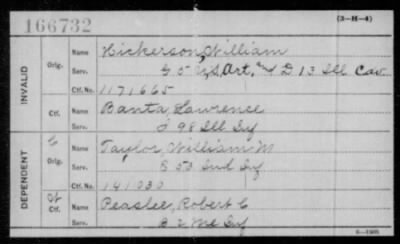 166732
(3-H-4)
INVALID
Orig.
Name Hickerson, William
Serv. G 5 U.S. Art. and D 13 Ill Cav
Ctf. No. 1171665
Ctf.
Name Banta, Lawrence
Serv. 98 Ill Inf
DEPENDENT
Orig.
Name Taylor, William M
Serv. 53 Ind Inf
Ctf. No. 141030
Ctf.
Name Peaslee, Robert C
Serv. B 2 Me Inf